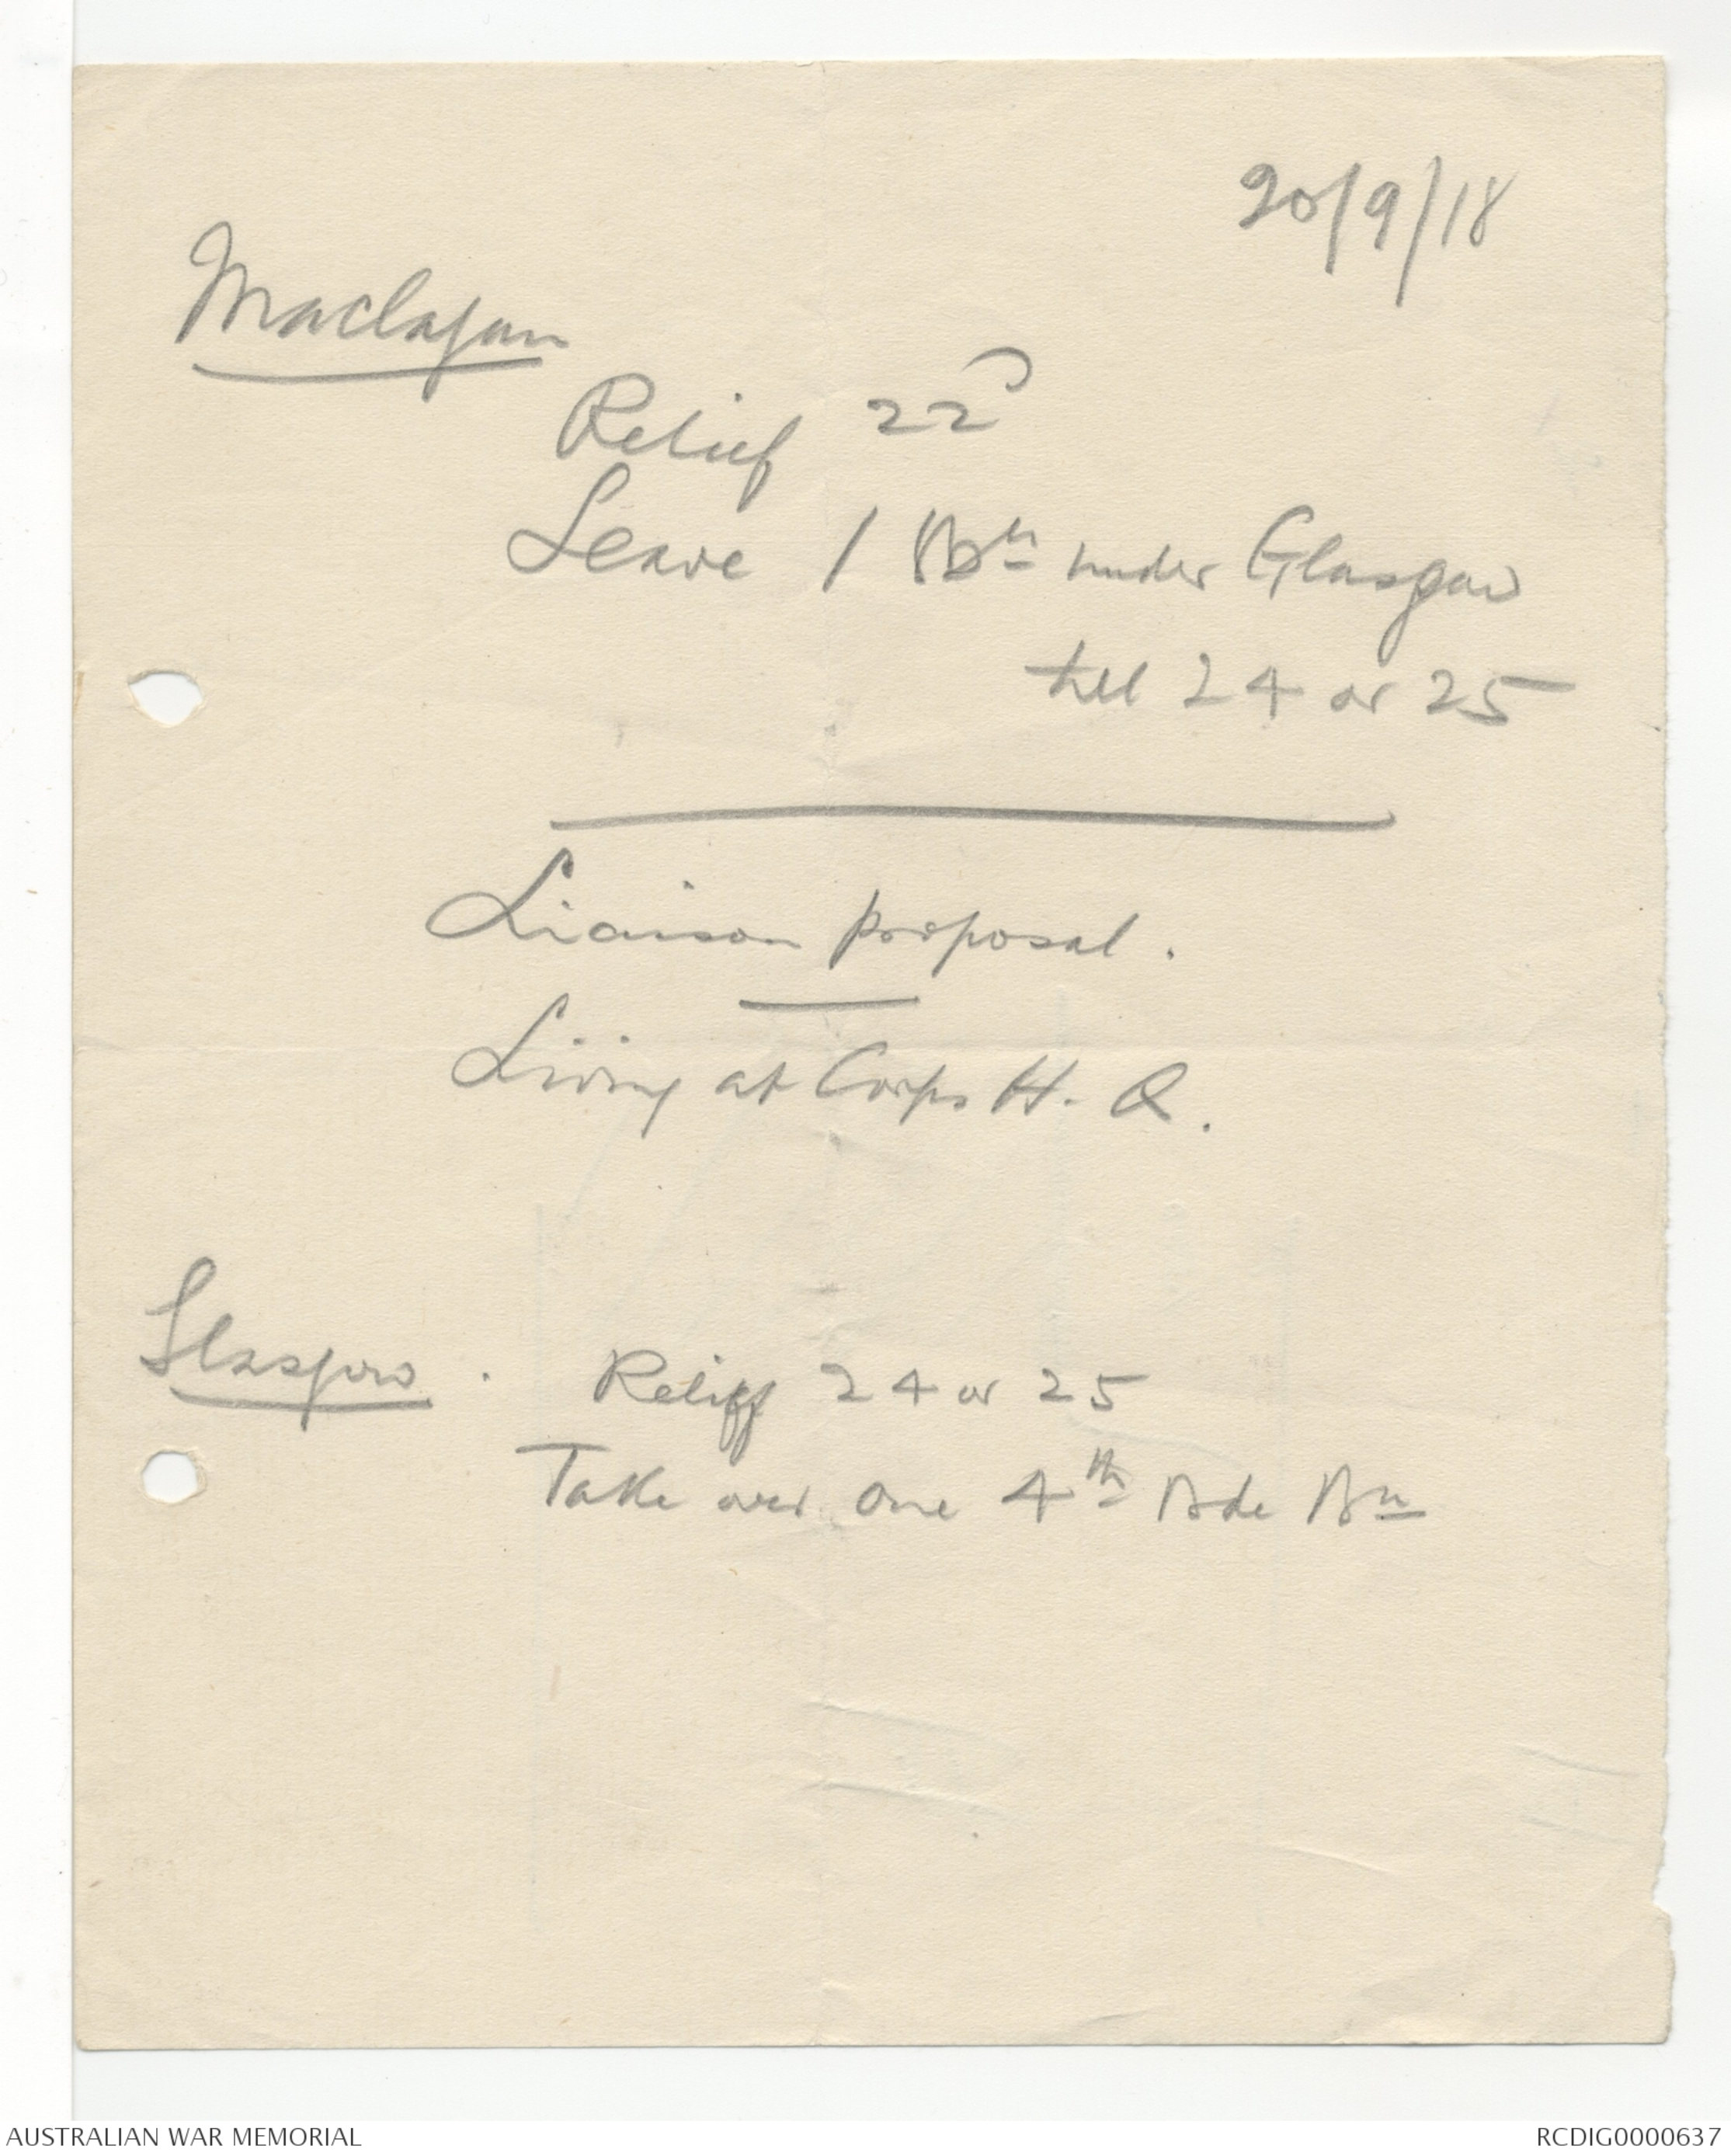 20/9/18
Maclagan
Relief 22D
Leave 1 Bn under Glasgow
till 24 or 25
Liaison proposal.
Living at Corps H. Q.
Glasgow. Relief 24 or 25
Take over one 4th Bde Bn
AUSTRALIAN WAR MEMORIAL
RCDIG0000637